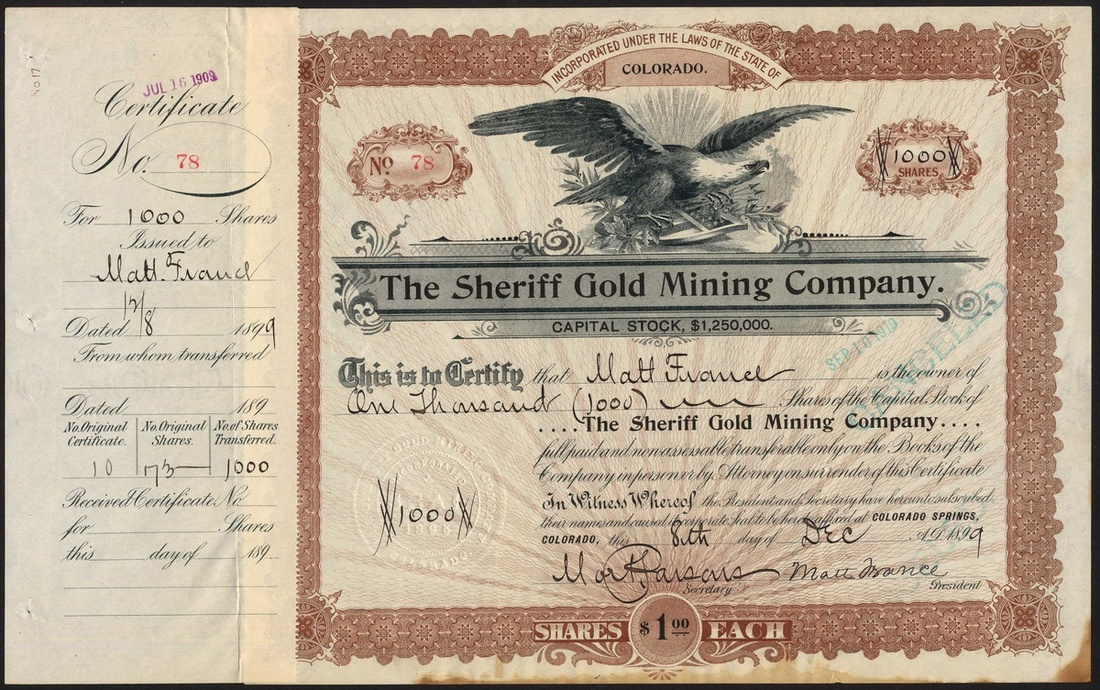 No 17
JUL 16 1909
Certificate
No. 78
For 1000 Shares
Issued to
Matt. France
12/8
Dated 1899
From whom transferred
Dated 189
No. Original Certificate.
No. Original Shares.
No. of Shares Transferred.
10
1000
Received Certificate No
for Shares
this day of 189
INCORPORATED UNDER THE LAWS OF THE STATE OF
COLORADO.
No 78
1000
SHARES
The Sheriff Gold Mining Company.
CAPITAL STOCK, $1,250,000.
SEP 10 1910
CANCELLED
This is to Certify that Matt France is the owner of
One Thousand (1000) Shares of the Capital Stock of
....The Sheriff Gold Mining Company....
full paid and non assessable transferable only on the Books of the
Company in person or by Attorney on surrender of this Certificate
In Witness Whereof the President and Secretary have hereunto subscribed
their names and caused its corporate Seal to be hereto affixed at COLORADO SPRINGS,
COLORADO, this 8th day of Dec A.D. 1899
1000
Parsons Matt France
Secretary President
SHARES $1.00 EACH